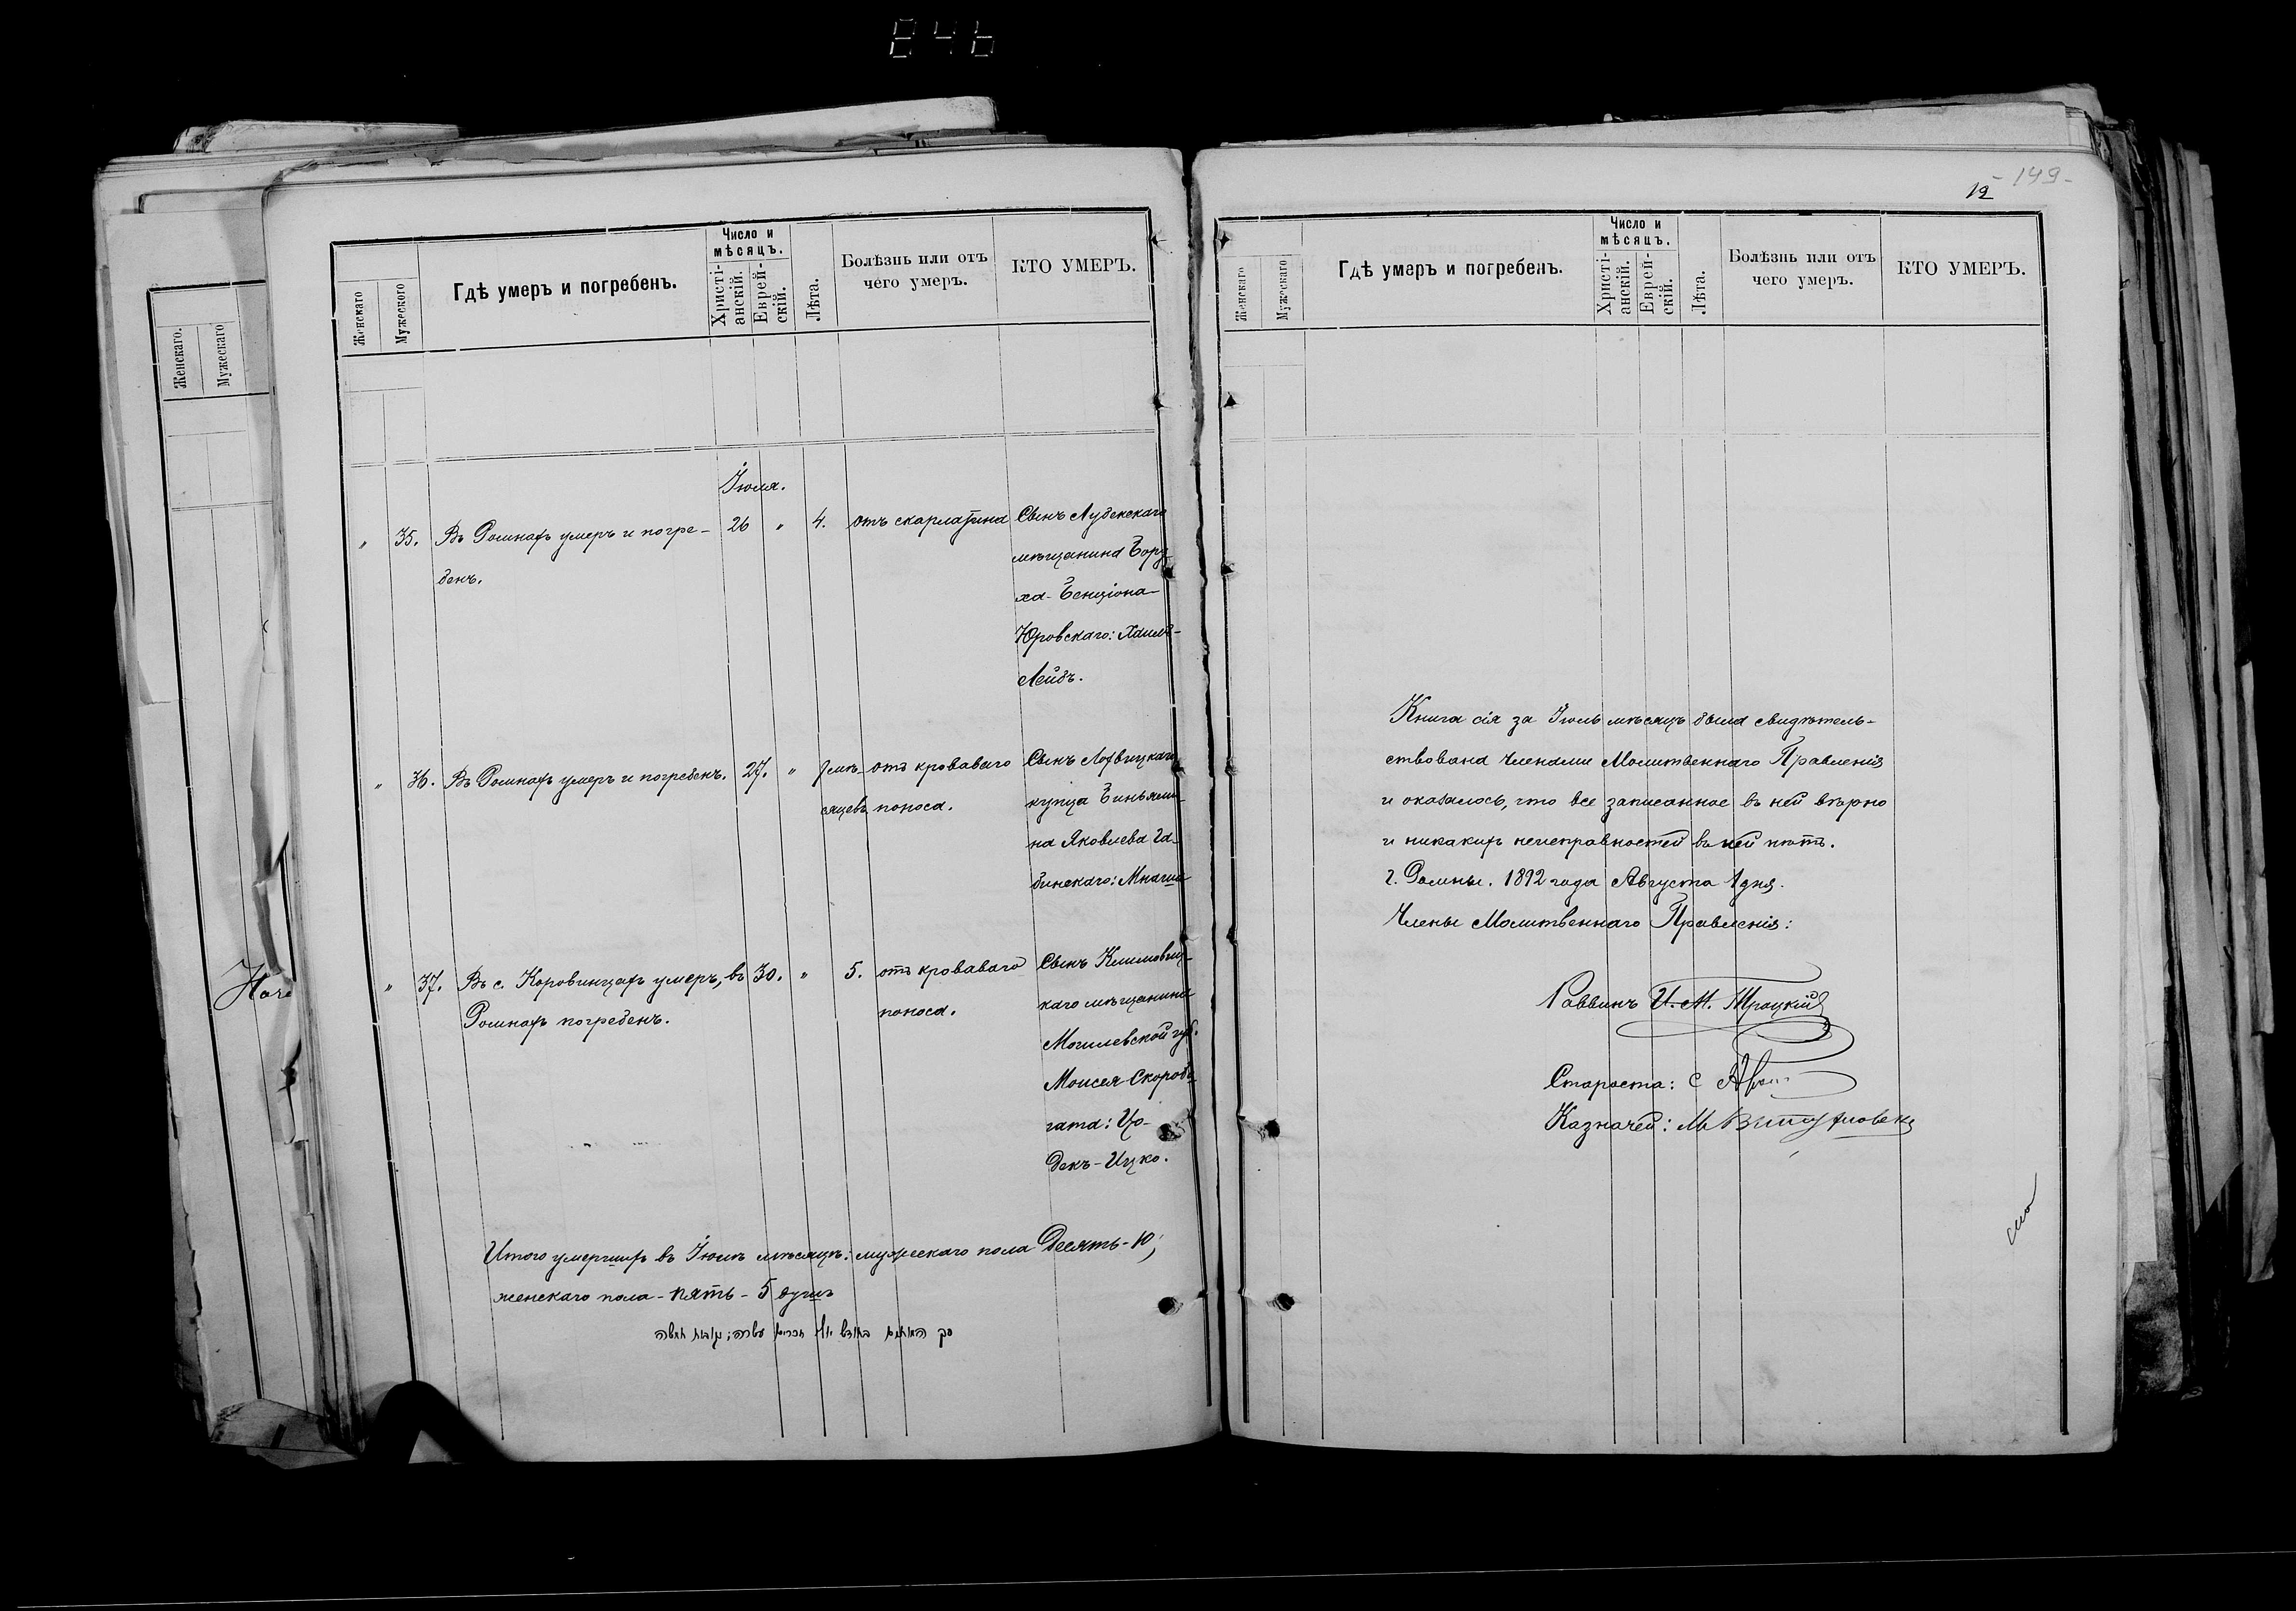 846
Женскаго.
Мужескаго
Женскаго
Мужеского
Гдѣ умеръ и погребенъ.
Число и
мѣсяцъ.
Христі-
анскій.
Еврей-
скій.
Лѣта.
Болѣзнь или отъ
чего умеръ.
КТО УМЕРЪ.
Іюля.
" 35. Въ Ромнахъ умеръ и погре- 26 " 4. отъ скарлатина Сынъ
денъ. мѣщанина Бору
ха-Бенціона
Юровскаго: Хаимъ-
Лейбъ.
" 36. Въ Ромнахъ умеръ и погребенъ. 27. " мѣ- отъ кроваваго Сынъ Лохвицкаго
сяцевъ поноса. купца Биньями-
на Яковлева Га-
бинскаго:
" 37. Въ с. Коровинцахъ умеръ, въ 30. " 5. отъ кроваваго Сынъ Климовиц-
Ромнахъ погребенъ. поноса. каго мѣщанина
Могилевской губ.
Моисея Скоробо
гата: Цо-
декъ-Ицко.
Итого умершихъ въ Іюлѣ мѣсяцѣ: мужескаго пола Десять-10;
женскаго пола - пять - 5 душъ
סך המתים בחודש יולי זכרים עשרה; נקבות חמשה
12 -149-
Женскаго
Мужескаго
Гдѣ умеръ и погребенъ.
Число и
мѣсяцъ.
Христі-
анскій.
Еврей-
скій.
Лѣта.
Болѣзнь или отъ
чего умеръ.
КТО УМЕРЪ.
Книга сія за Іюль мѣсяцъ была свидѣтель-
ствована Членами Молитвеннаго Правленія
и оказалось, что все записанное въ ней вѣрно
и никакихъ неисправностей въ ней нѣтъ.
г. Ромны. 1892 года Августа 1 дня.
Члены Молитвеннаго Правленія:
Раввинъ И. М. Троцкій
Староста: С
Казначей: М